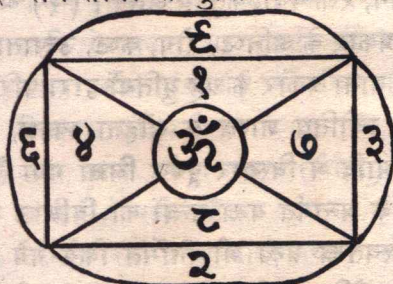 ९
१
६ ४ ॐ ७ ३
८
२